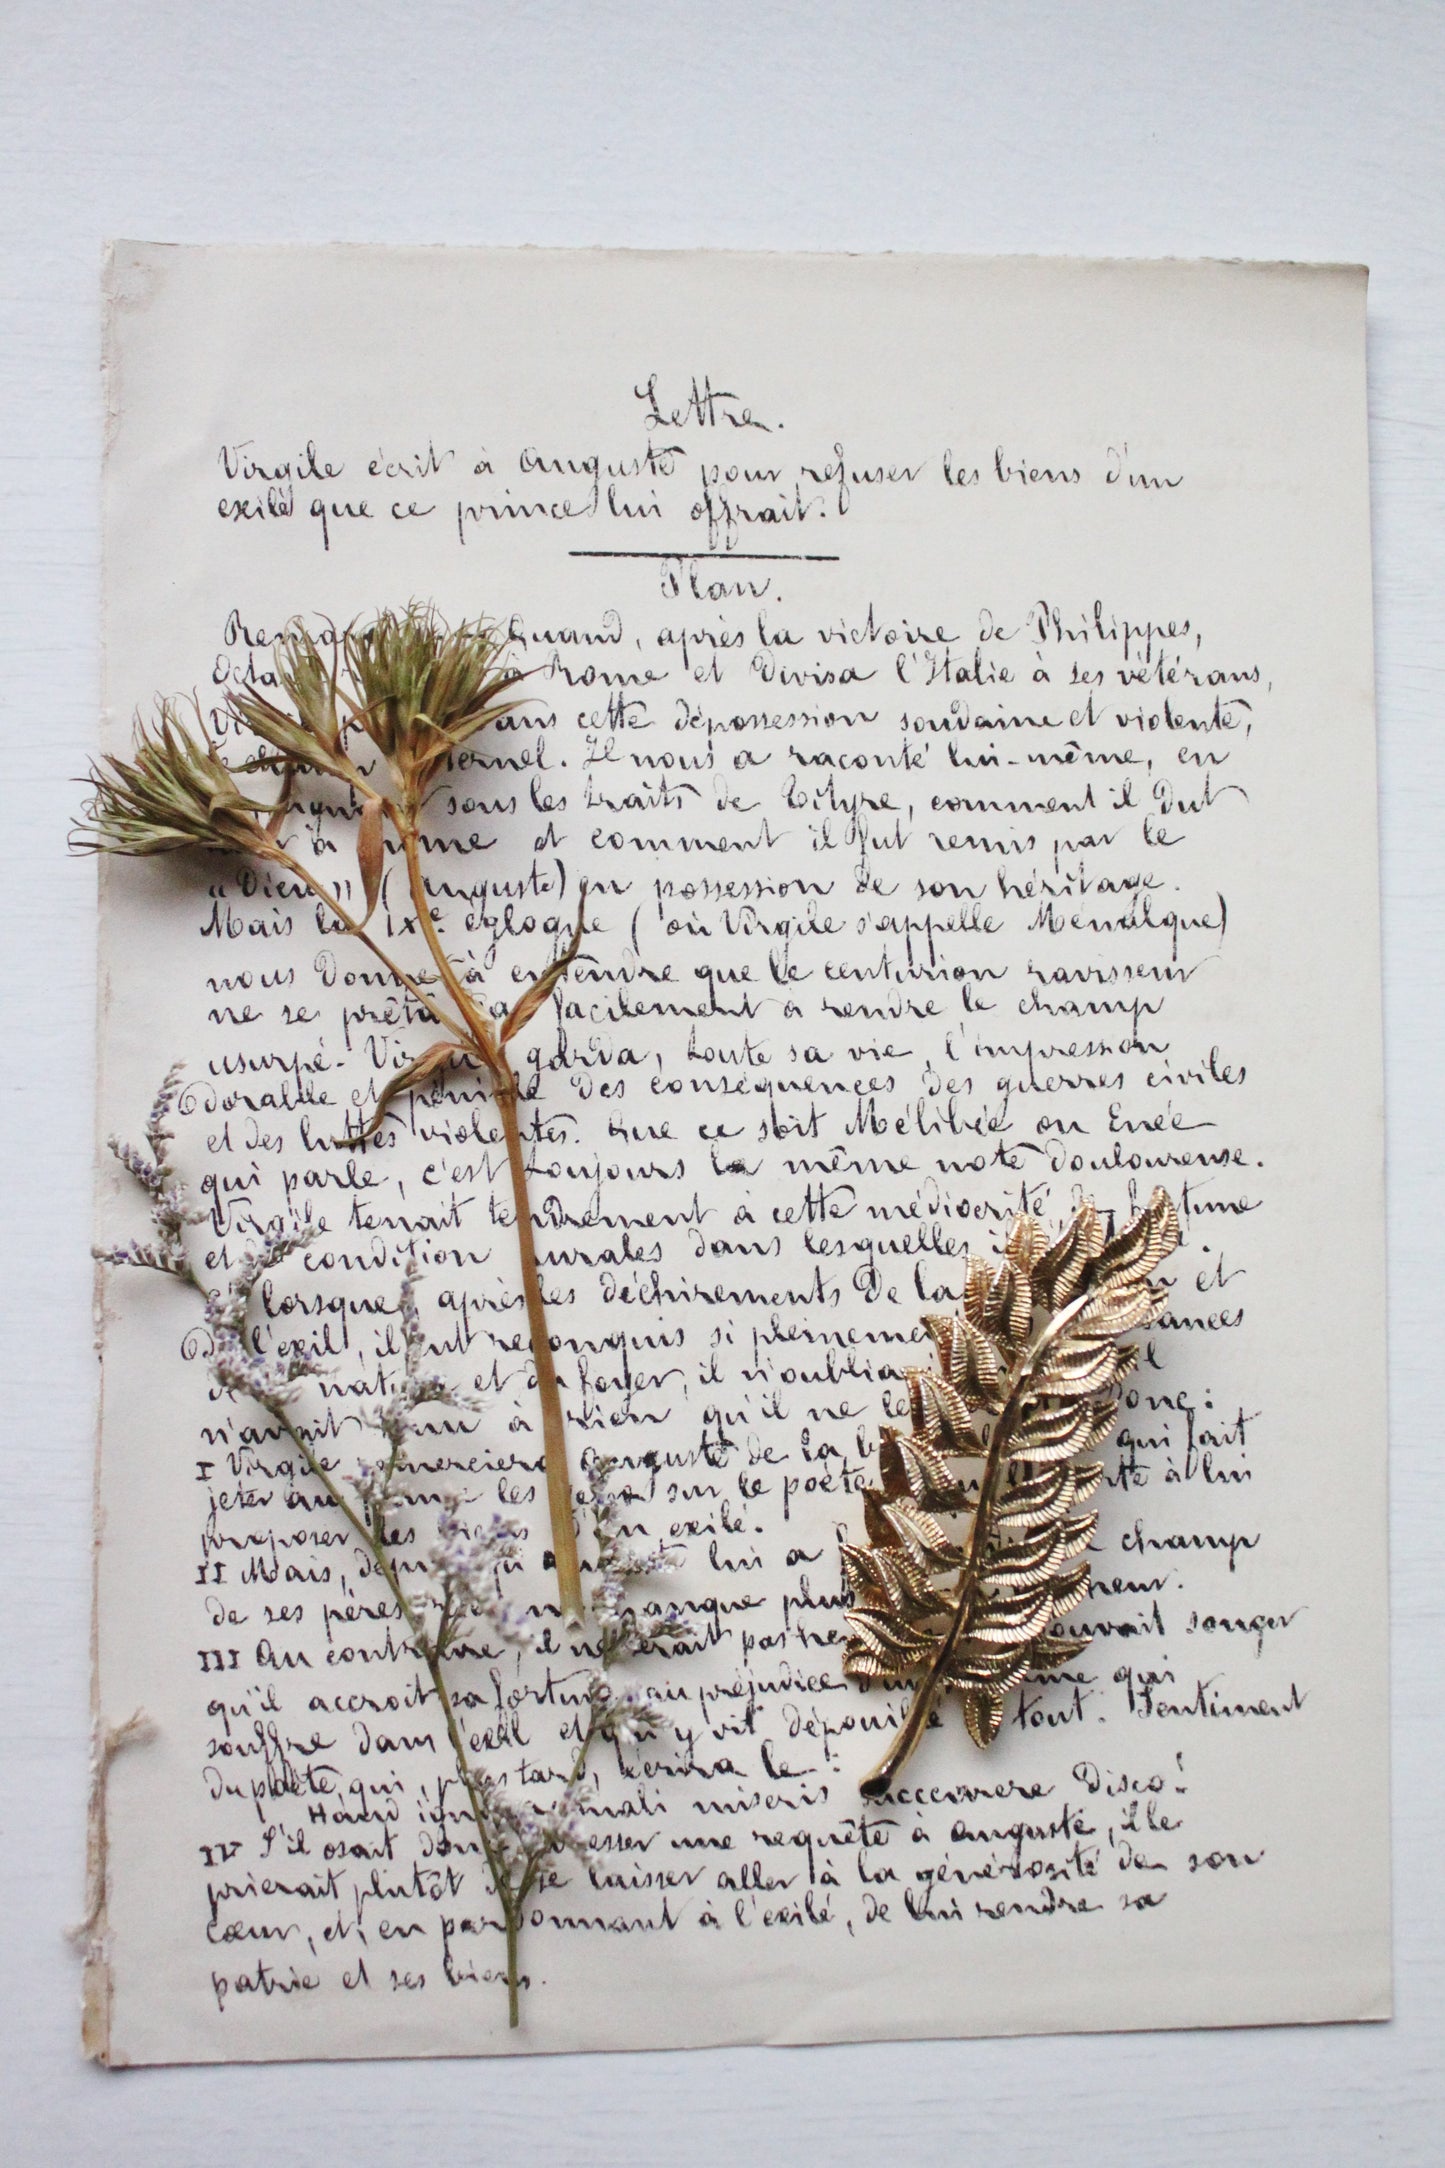 Lettre.
Virgile écrit à Auguste pour refuser les biens d'un
exilé que ce prince lui offrait.
Plan.
Quand, après la victoire de Philippes,
Rome et divisa l'Italie à ses vétérans,
cette dépossession soudaine et violente,
Il nous a raconté lui-même, en
sous les traits de Tityre, comment il dut
à et comment il fut remis par le
"Dieu" (Auguste) en possession de son héritage.
Mais la IXe églogue (où Virgile s'appelle Ménalque)
nous donne à entendre que le centurion ravisseur
ne se prêta facilement à rendre le champ
usurpé. garda, toute sa vie, l'impression
et des conséquences des guerres civiles
et des luttes violentes. Que ce soit Mélibée ou Enée
qui parle, c'est toujours la même note douloureuse.
Virgile tenait tendrement à cette médiocrité
et de condition rurales dans lesquelles
lorsque, après les déchirements de la et
l'exil, il eut reconquis si
et du foyer, il n'oublia
n'avait à rien qu'il ne donc:
I Virgile remerciera Auguste de la qui fait
jeter les sur le poète à lui
proposer les biens d'un exilé.
II Mais, lui a champ
de ses pères manque plus
III Au contraire, il ne serait pas pouvait songer
qu'il accroit sa fortune au préjudice qui
souffre dans l'exil et qui y vit dépouillé tout. Sentiment
du poète qui, plus tard, écrira le :
Haud mali miseris succurrere disco!
IV S'il osait donc adresser une requête à Auguste, il le
prierait plutôt de se laisser aller à la générosité de son
cœur, et, en pardonnant à l'exilé, de lui rendre sa
patrie et ses biens.